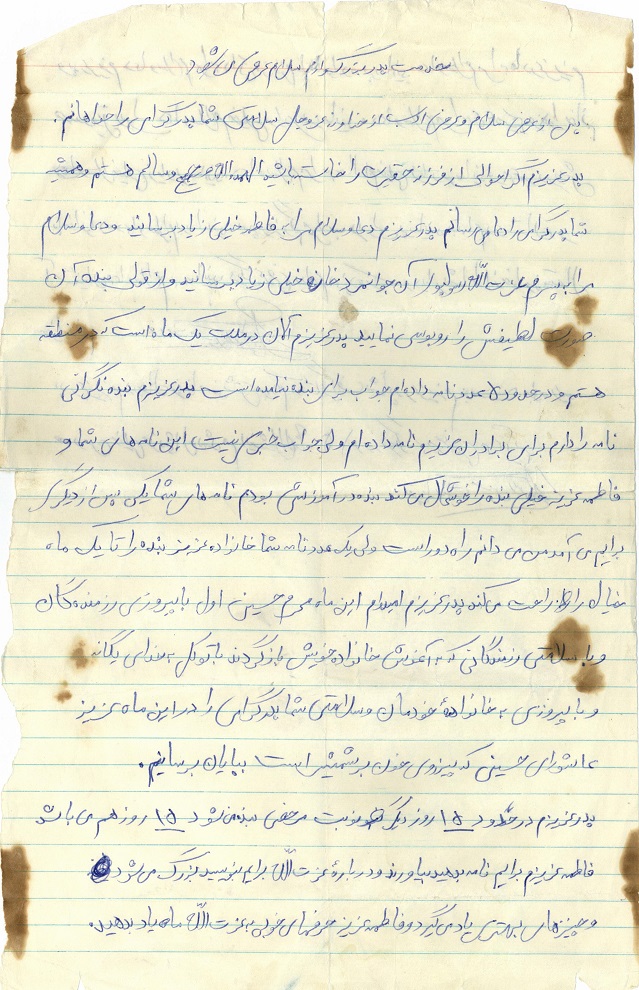 خدمت پدر بزرگوارم سلام عرض می‌شود
پس از عرض سلام و عرض ادب از خداوند عزوجل سلامتی شما پدر گرامی را خواهانم.
پدر عزیزم اگر احوالی از فرزند حقیرت را خواسته باشید الحمدالله صحیح و سالم هستم و همیشه
شما پدر گرامی را دعا می رسانم پدر عزیزم دعا و سلام مرا به فاطمه خیلی زیاد برسانید و دعا و سلام
مرا به پسرم عزت الله آن جوانمرد خانه خیلی زیاد برسانید و از قول بنده آن
صورت لطیفش را روبوسی نمایید پدر عزیزم الان در مدت یک ماه است که در منطقه
هستم و در حدود ۵ عدد نامه داده‌ام جواب برای بنده نیامده است پدر عزیزم بنده نگرانی
نامه را دارم برای برادران عزیزم نامه داده‌ام ولی جواب خبری نیست این نامه های شما و
فاطمه عزیز خیلی بنده را خوشحال می کند بنده در آموزشی بودم نامه های شما یکی پس از دیگری
برایم می آمد من می دانم راه دور است ولی یک عدد نامه شما خانواده عزیز بنده را تا یک ماه
خیال را راحت می کند پدر عزیزم امیدوارم این ماه محرم حسینی اول با پیروزی رزمندگان
و با سلامتی رزمندگانی که به آغوش خانواده خویش بازگردند با توکل به خدای یگانه
و با پیروزی به خانوادهٔ خودمان و سلامتی شما پدر گرامی را در این ماه عزیز
عاشورای حسینی که پیروزی خون بر شمشیر است بپایان برسانیم.
پدر عزیزم در حدود ۱۵ روز دیگر نوبت مرخصی بنده می‌شود ۱۵ روز هم می باشد
فاطمه عزیزم برایم نامه بدهید بیاورند و دربارهٔ عزت الله برایم بنویسید بزرگ می شود
و چیزهای بهتری یاد می گیرد و فاطمه عزیز حرفهای خوبی به عزت الله ما یاد بدهید.